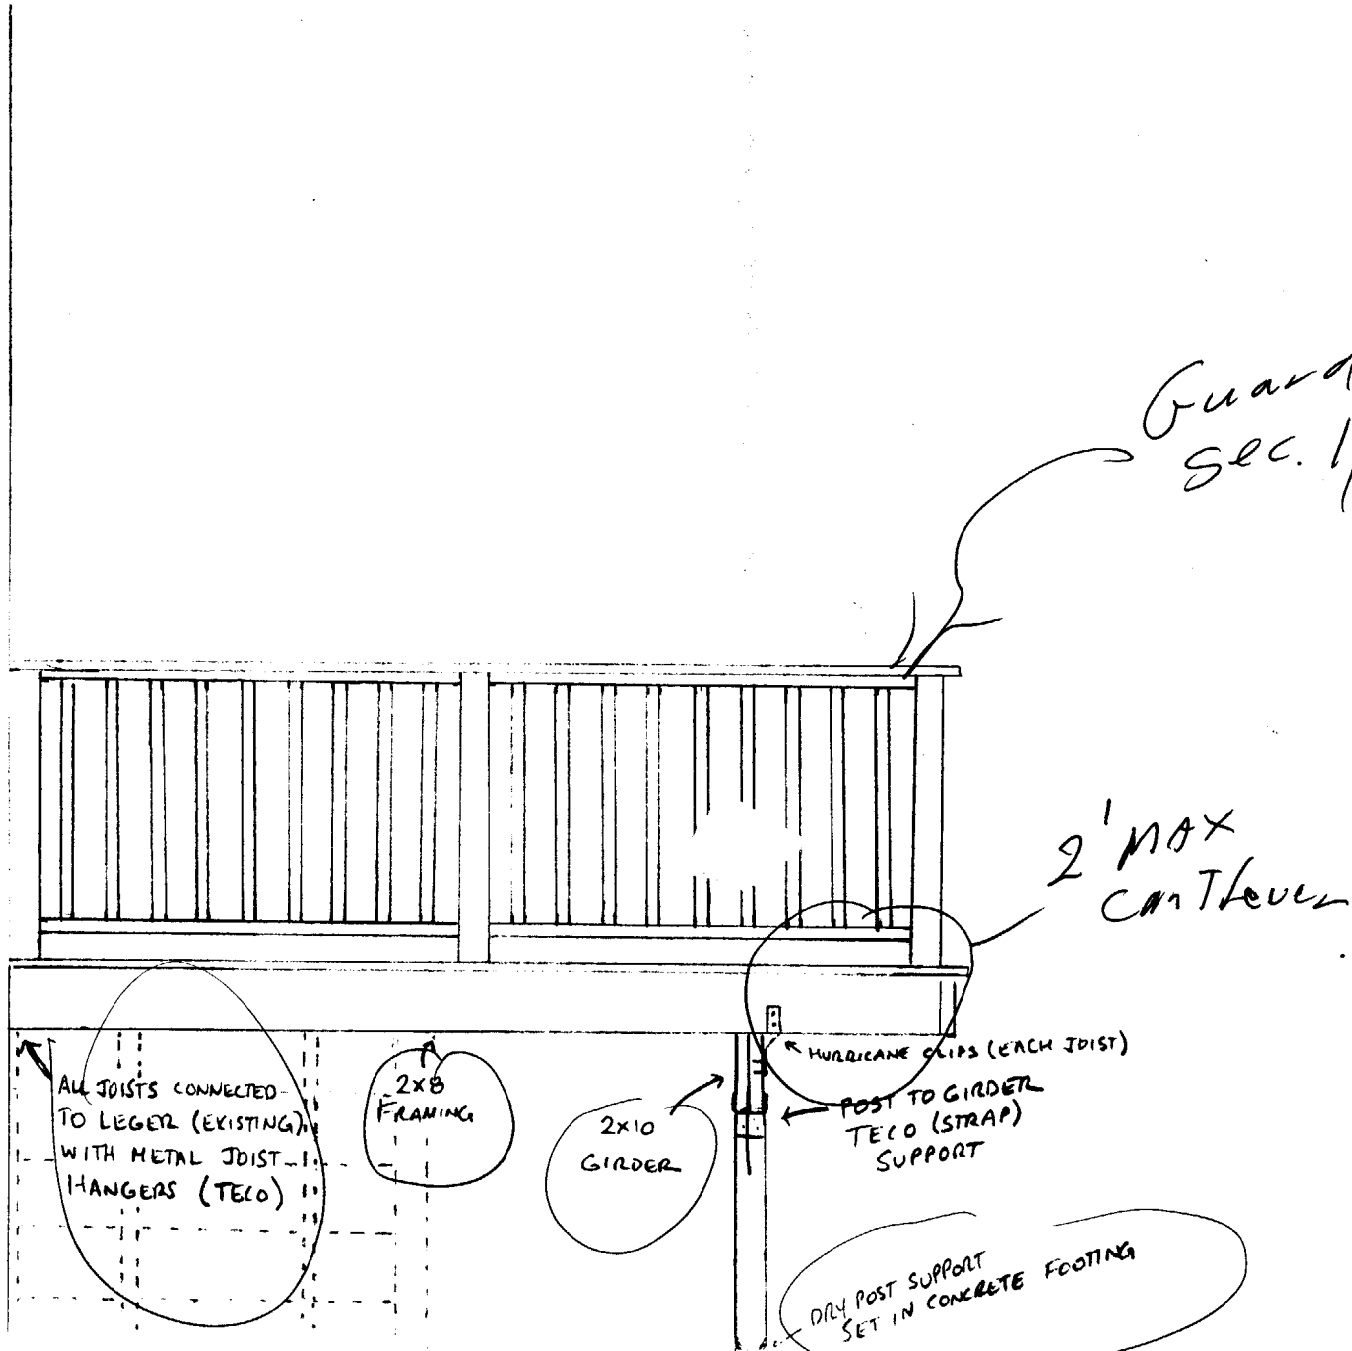 Guard
Sec. 1
2' MAX
canTlever
HURRICANE CLIPS (EACH JOIST)
ALL JOISTS CONNECTED
TO LEGER (EXISTING)
WITH METAL JOIST
HANGERS (TECO)
2x8
FRAMING
2x10
GIRDER
POST TO GIRDER
TECO (STRAP)
SUPPORT
DRY POST SUPPORT
SET IN CONCRETE FOOTING